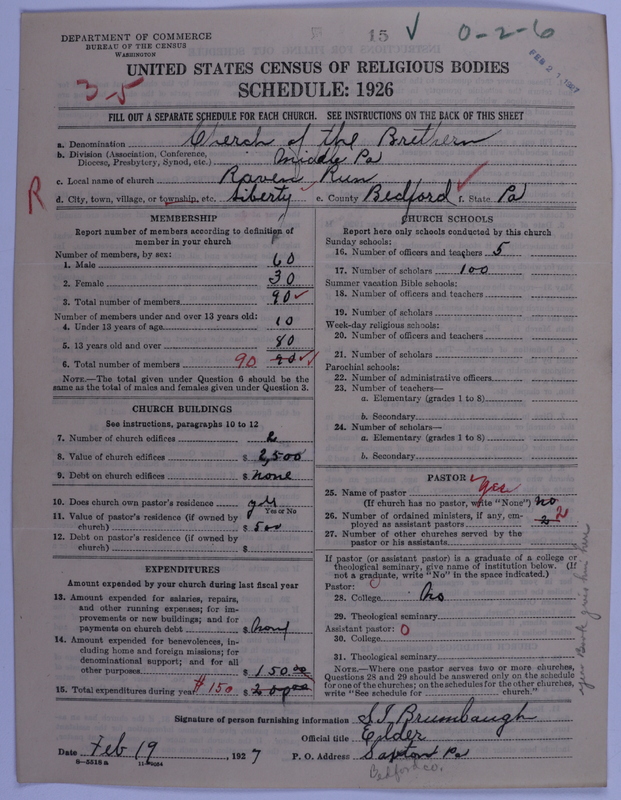 DEPARTMENT OF COMMERCE
BUREAU OF THE CENSUS
WASHINGTON
15 √ 0-2-6
FEB 21 1927
UNITED STATES CENSUS OF RELIGIOUS BODIES
SCHEDULE: 1926
35
FILL OUT A SEPARATE SCHEDULE FOR EACH CHURCH. SEE INSTRUCTIONS ON THE BACK OF THIS SHEET
a. Denomination Church of the Brethern
b. Division (Association, Conference, Diocese, Presbytery, Synod, etc.) Middle Pa
c. Local name of church Raven Run
R
d. City, town, village, or township, etc. Liberty e. County Bedford f. State Pa
MEMBERSHIP
Report number of members according to definition of member in your church
Number of members, by sex:
1. Male 60
2. Female 30
3. Total number of members 90
Number of members under and over 13 years old:
4. Under 13 years of age 10
5. 13 years old and over 80
6. Total number of members 90 90
NOTE.—The total given under Question 6 should be the same as the total of males and females given under Question 3.
CHURCH BUILDINGS
See instructions, paragraphs 10 to 12
7. Number of church edifices 2
8. Value of church edifices $ 2,500
9. Debt on church edifices $ none
10. Does church own pastor's residence yes
Yes or No
11. Value of pastor's residence (if owned by church) $ 500
12. Debt on pastor's residence (if owned by church) $
EXPENDITURES
Amount expended by your church during last fiscal year
13. Amount expended for salaries, repairs, and other running expenses; for improvements or new buildings; and for payments on church debt $ none
14. Amount expended for benevolences, including home and foreign missions; for denominational support; and for all other purposes $ 150.00
15. Total expenditures during year #150 $ 200.00
CHURCH SCHOOLS
Report here only schools conducted by this church
Sunday schools:
16. Number of officers and teachers 5
17. Number of scholars 100
Summer vacation Bible schools:
18. Number of officers and teachers
19. Number of scholars
Week-day religious schools:
20. Number of officers and teachers
21. Number of scholars
Parochial schools:
22. Number of administrative officers
23. Number of teachers—
a. Elementary (grades 1 to 8)
b. Secondary
24. Number of scholars—
a. Elementary (grades 1 to 8)
b. Secondary
PASTOR
25. Name of pastor yes
(If church has no pastor, write "None") no
26. Number of ordained ministers, if any, employed as assistant pastors 2 2
27. Number of other churches served by the pastor or his assistants
If pastor (or assistant pastor) is a graduate of a college or theological seminary, give name of institution below. (If not a graduate, write "No" in the space indicated.)
Pastor:
28. College No
29. Theological seminary
Assistant pastor: 0
30. College
31. Theological seminary
NOTE.—Where one pastor serves two or more churches, Questions 28 and 29 should be answered only on the schedule for one of the churches; on the schedules for the other churches, write "See schedule for ............ church."
Year Book gives him here
Signature of person furnishing information S.I. Brumbaugh
Official title Elder
Date Feb 19, 1927 P. O. Address Saxton Pa
Bedford co.
8—5518 a